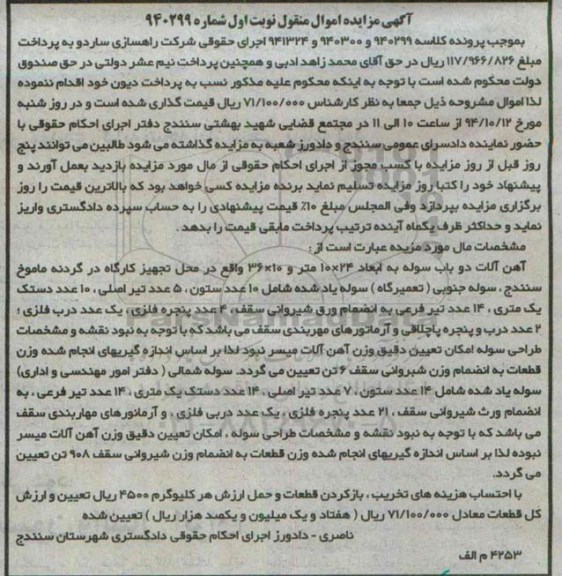 آگهی مزایده اموال منقول نوبت اول شماره ۹۴۰۲۹۹
بموجب پرونده کلاسه ۹۴۰۲۹۹ و ۹۴۰۳۰۰ و ۹۴۱۳۲۴ اجرای حقوقی شرکت راهسازی ساردو به پرداخت
مبلغ ۱۱۷/۹۶۶/۸۲۶ ریال در حق آقای محمد زاهد ادبی و همچنین پرداخت نیم عشر دولتی در حق صندوق
دولت محکوم شده است با توجه به اینکه محکوم علیه مذکور نسب به پرداخت دیون خود اقدام ننموده
لذا اموال مشروحه ذیل جمعا به نظر کارشناس ۷۱/۱۰۰/۰۰۰ ریال قیمت گذاری شده است و در روز شنبه
مورخ ۹۴/۱۰/۱۲ از ساعت ۱۰ الی ۱۱ در مجتمع قضایی شهید بهشتی سنندج دفتر اجرای احکام حقوقی با
حضور نماینده دادسرای عمومی سنندج و دادورز شعبه به مزایده گذاشته می شود طالبین می توانند پنج
روز قبل از روز مزایده با کسب مجوز از اجرای احکام حقوقی از مال مورد مزایده بازدید بعمل آورند و
پیشنهاد خود را کتبا روز مزایده تسلیم نماید برنده مزایده کسی خواهد بود که بالاترین قیمت را روز
برگزاری مزایده بپردازد وفی المجلس مبلغ ۱۰٪ قیمت پیشنهادی را به حساب سپرده دادگستری واریز
نماید و حداکثر ظرف یکماه آینده ترتیب پرداخت مابقی قیمت را بدهد .
مشخصات مال مورد مزیده عبارت است از :
آهن آلات دو باب سوله به ابعاد ۲۴×۱۰ متر و ۱۰×۳۶ واقع در محل تجهیز کارگاه در گردنه ماموخ
سنندج ، سوله جنوبی ( تعمیرگاه ) سوله یاد شده شامل ۱۰ عدد ستون ، ۵ عدد تیر اصلی ، ۱۰ عدد دستک
یک متری ، ۱۴ عدد تیر فرعی به انضمام ورق شیروانی سقف ، ۴ عدد پنجره فلزی ، یک عدد درب فلزی ؛
۲ عدد درب و پنجره پاچلاقی و آرماتورهای مهربندی سقف می باشد که با توجه به نبود نقشه و مشخصات
طراحی سوله امکان تعیین دقیق وزن آهن آلات میسر نبود لذا بر اساس اندازه گیریهای انجام شده وزن
قطعات به انضمام وزن شیروانی سقف ۶ تن تعیین می گردد. سوله شمالی ( دفتر امور مهندسی و اداری)
سوله یاد شده شامل ۱۴ عدد ستون ، ۷ عدد تیر اصلی ، ۱۴ عدد دستک یک متری ، ۱۴ عدد تیر فرعی ، به
انضمام ورث شیروانی سقف ، ۲۱ عدد پنجره فلزی ، یک عدد دربی فلزی ، و آرمانورهای مهاربندی سقف
می باشد که با توجه به نبود نقشه و مشخصات طراحی سوله ، امکان تعیین دقیق وزن آهن آلات میسر
نبوده لذا بر اساس اندازه گیریهای انجام شده وزن قطعات به انضمام وزن شیروانی سقف ۹۰۸ تن تعیین
می گردد.
با احتساب هزینه های تخریب ، بازکردن قطعات و حمل ارزش هر کلیوگرم ۴۵۰۰ ریال تعیین و ارزش
کل قطعات معادل ۷۱/۱۰۰/۰۰۰ ریال ( هفتاد و یک میلیون و یکصد هزار ریال ) تعیین شده
ناصری - دادورز اجرای احکام حقوقی دادگستری شهرستان سنندج
۴۲۵۳ م الف